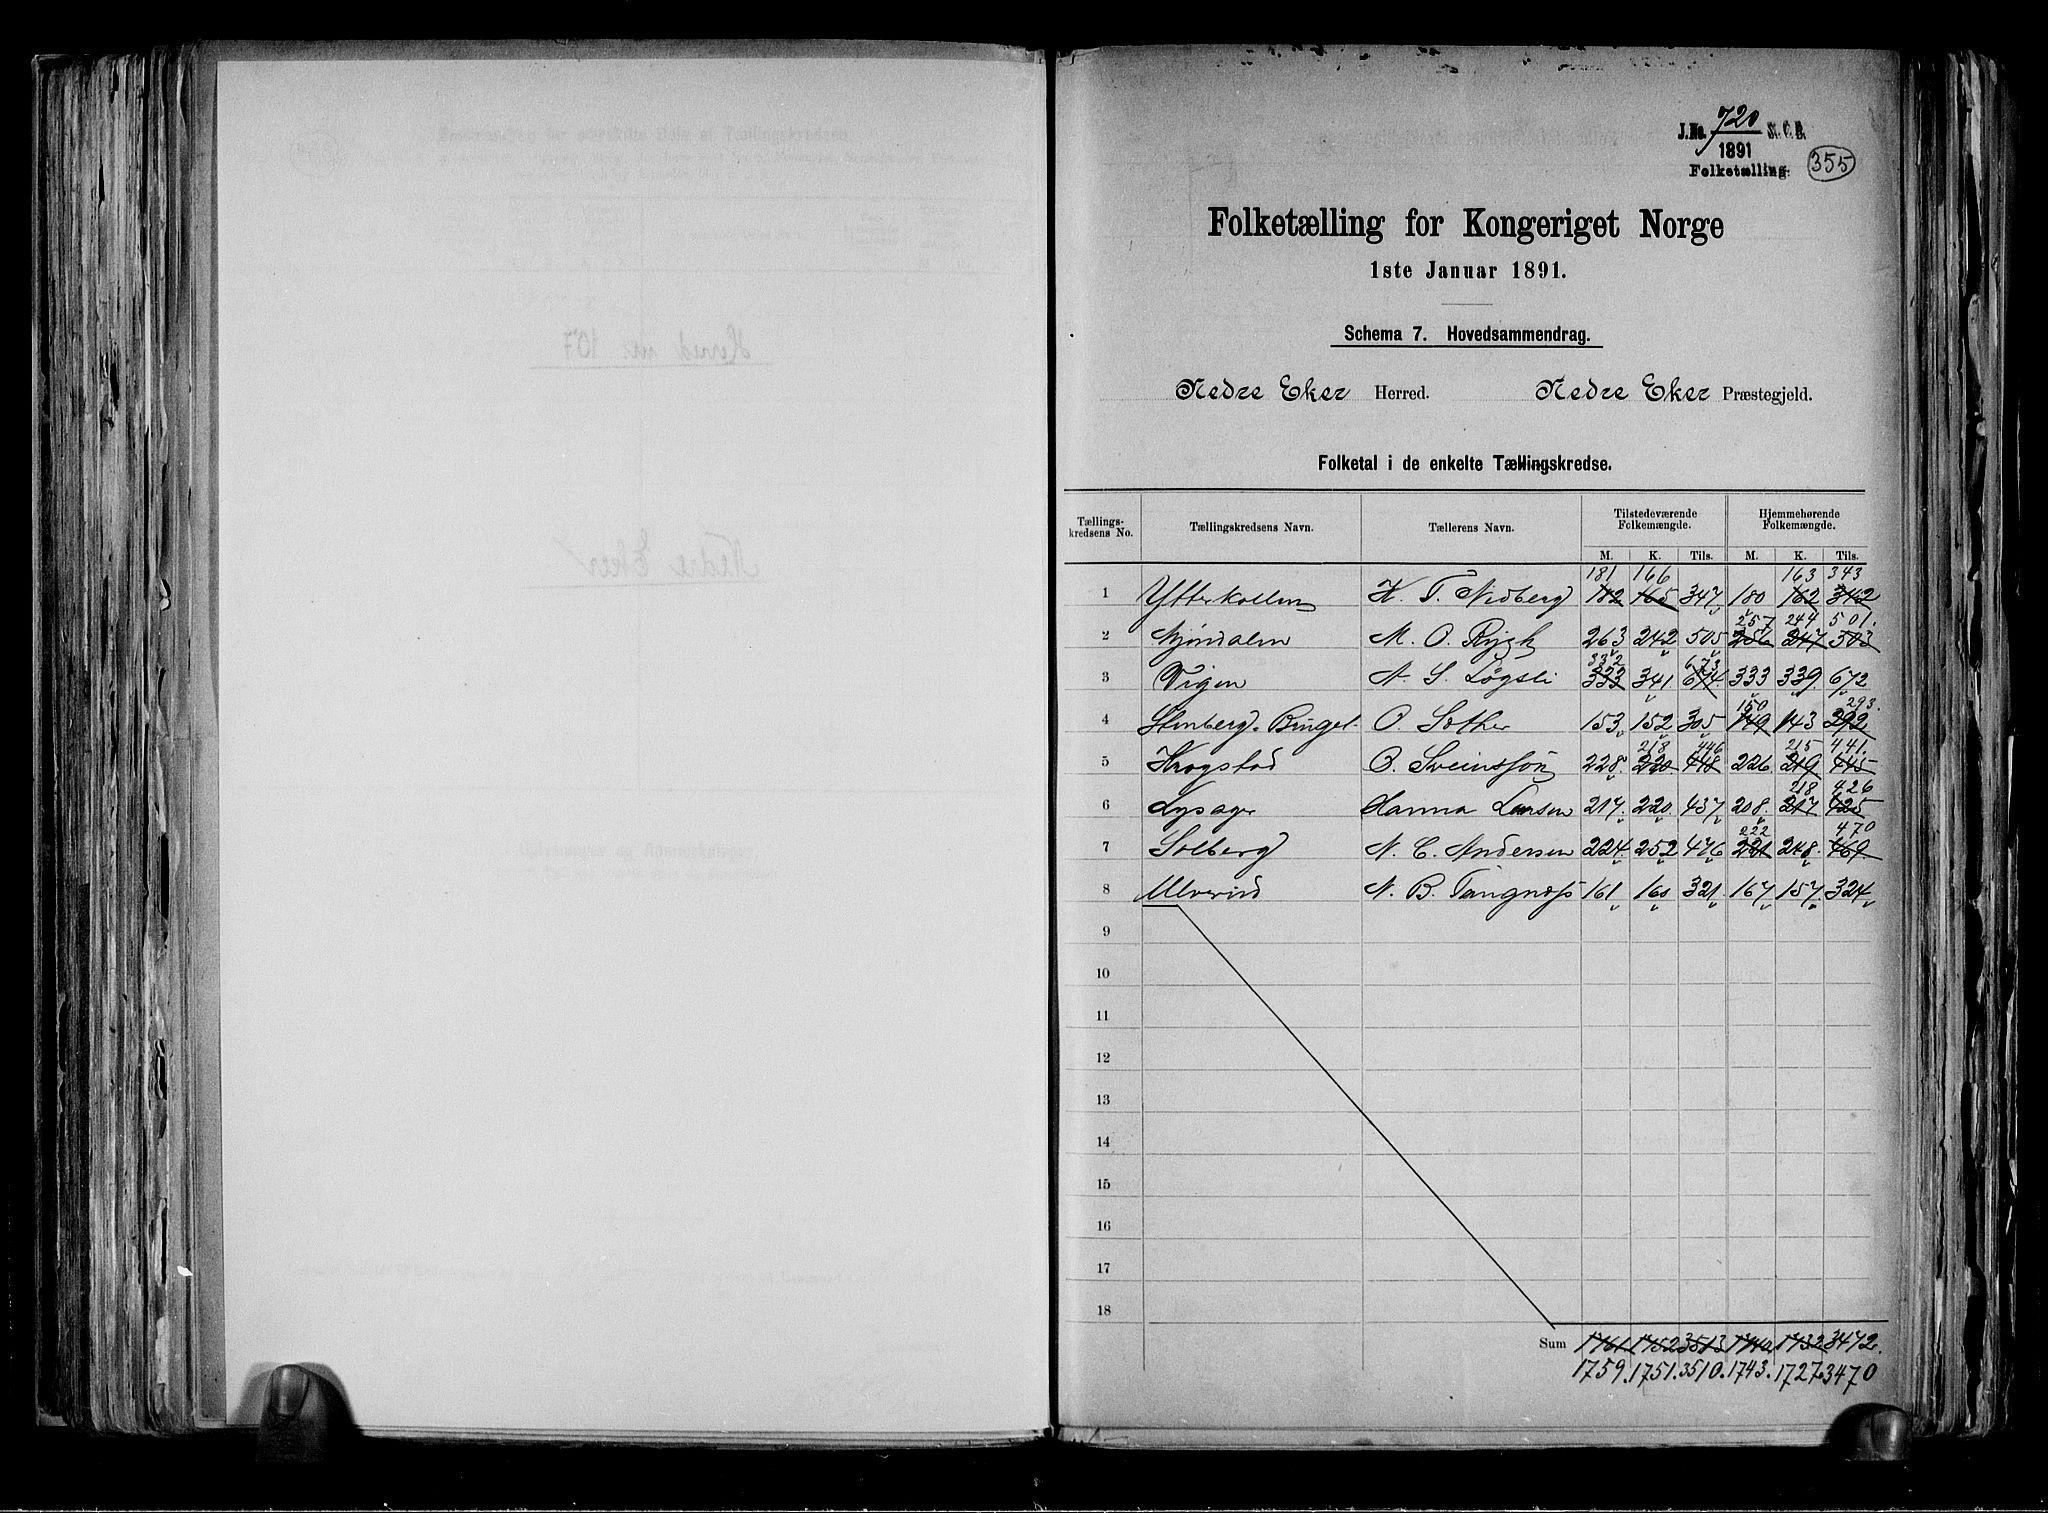 J.No. 720 St. C. B.
1891
Folketælling.
355
Folketælling for Kongeriget Norge
1ste Januar 1891.
Schema 7. Hovedsammendrag.
Nedre Eker Herred. Nedre Eker Præstegjeld.
Folketal i de enkelte Tællingskredse.
Tællingskredsens No. Tællingskredsens Navn. Tællerens Navn. Tilstedeværende Folkemængde. Hjemmehørende Folkemængde.
M. K. Tils. M. K. Tils.
181 166 163 343
1 Ytterkollen K. T. Nedberg 182 165 347 180 162 342
257 244 501.
2 Mjøndalen M. O. Rygh 263 242 505 256 247 503
332 673
3 Vigen A. S. Løgsli 333 341. 674. 333 339. 672
150 293.
4 Stenberg-Bingel. O. Sother 153 152 305 149 143 292
218 446 215 441.
5 Krogstad O. Sveinssøn 228. 220 448 226. 219 445
218 426
6 Lysager Hanna Larsen 217. 220. 437 208. 217 425
222 470
7 Solberg N. C. Andersen 224. 252 476 221 248. 469.
8 Ulverud N. B. Tangnæss 161 160 321. 167 157. 324
9
10
11
12
13
14
15
16
17
18
Sum 1761 1752 3513 1740 1732 3472.
1759. 1751. 3510. 1743. 1727. 3470
Herred nr. 107
Nedre Eker